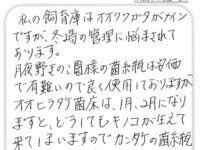 私の飼育庫はオオクワガタがメイン
ですが、冬場の管理に悩まされて
おります。
月夜野きのこ園様の菌糸瓶は安価
で有難いので良く使用しておりますが、
オオヒラタケ菌床は、1月、2月になり
ますと、どうしてもキノコが生えて
来てしまいますのでカンタケの菌糸瓶